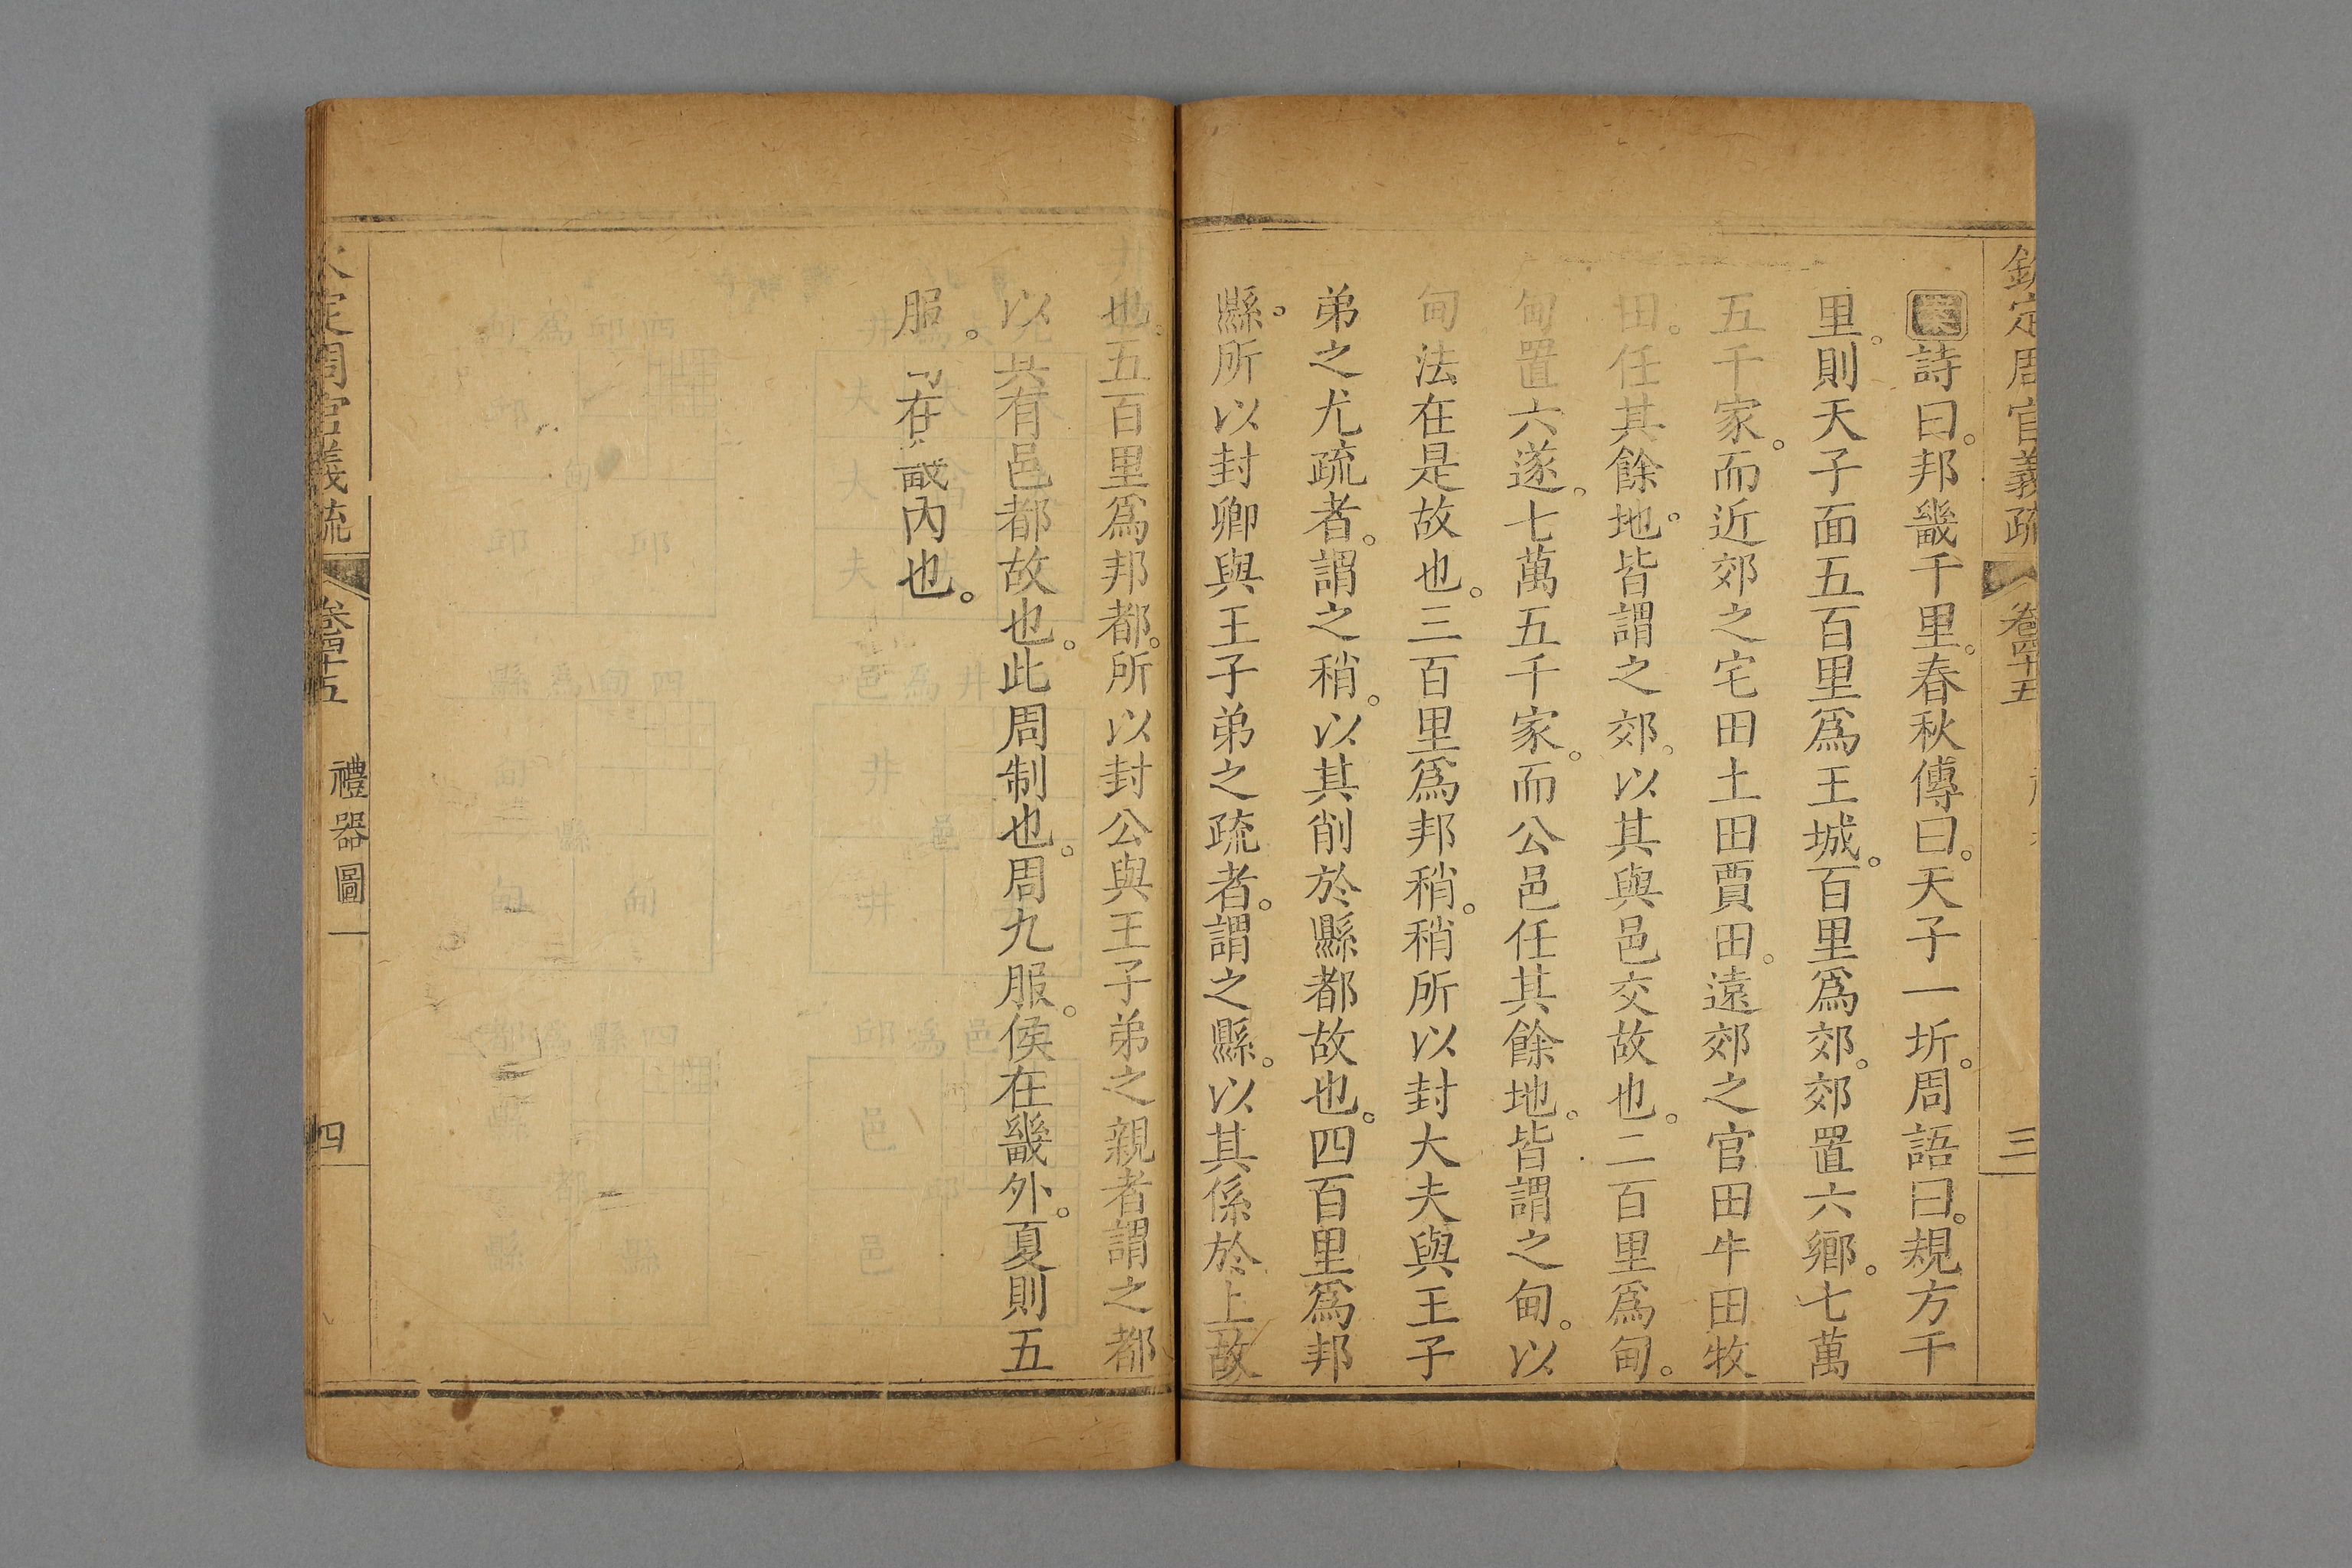 欽定周官義疏 卷四十五 三
詩曰。邦畿千里。春秋傳曰。天子一圻。周語曰。規方千
里。則天子面五百里爲王城。百里爲郊。郊置六鄉。七萬
五千家。而近郊之宅田土田賈田。遠郊之官田牛田牧
田。任其餘地。皆謂之郊。以其與邑交故也。二百里爲甸。
甸置六遂。七萬五千家。而公邑任其餘地。皆謂之甸。以
甸法在是故也。三百里爲邦稍。稍所以封大夫與王子
弟之尤疏者。謂之稍。以其削於縣都故也。四百里爲邦
縣。所以封卿與王子弟之疏者。謂之縣。以其係於上故
也。五百里爲邦都。所以封公與王子弟之親者謂之都
以其有邑都故也。此周制也。周九服。侯在畿外。夏則五
服。在畿內也。
定周官義疏 卷四十五 禮器圖 四